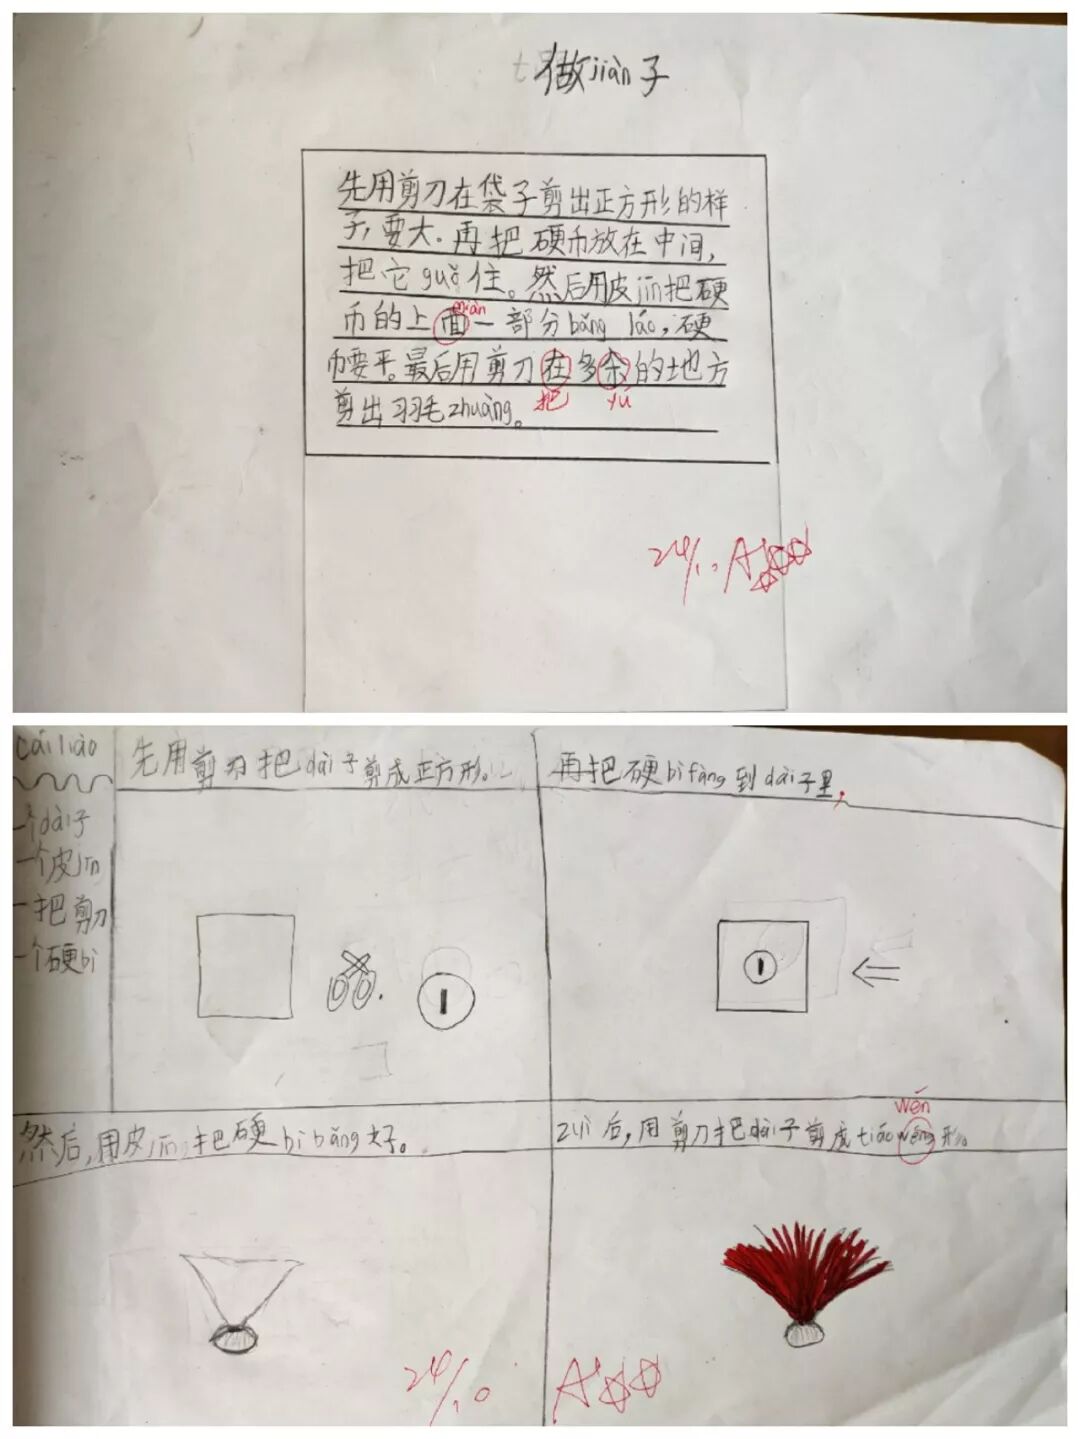 做jiàn子
先用剪刀在袋子剪出正方形的样
子,要大.再把硬币放在中间,
把它guǒ住。然后用皮jīn把硬
miàn
币的上面一部分bǎng láo,硬
币要平。最后用剪刀在多余的地方
把 yú
剪出羽毛zhuàng。
24/10 A
cái liào
一个dài子
一个皮jīn
一把剪刀
一个硬bì
先用剪刀把dài子剪成正方形。
再把硬bì fàng到dài子里,
1
1
然后,用皮jīn把硬bì bǎng好。
wén
zuì后,用剪刀把dài子剪成tiáo wéng形。
24/10 A